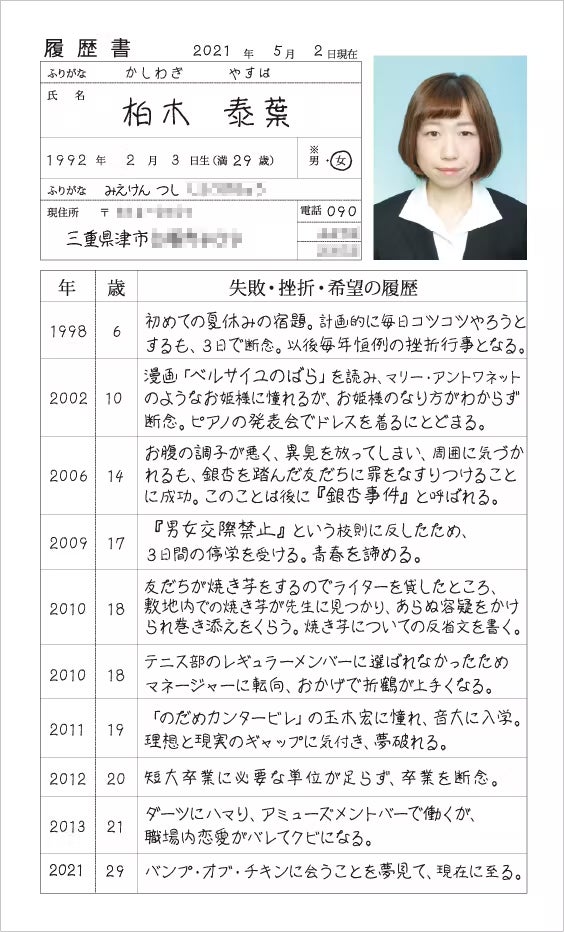 履歴書 2021年 5月 2日現在
ふりがな かしわぎ やすは
氏名 柏木 泰葉
1992年 2月 3日生(満29歳) ※男・女
ふりがな みえけん つし
現住所 〒 電話 090
三重県津市
年 歳 失敗・挫折・希望の履歴
1998 6 初めての夏休みの宿題。計画的に毎日コツコツやろうと
するも、3日で断念。以後毎年恒例の挫折行事となる。
2002 10 漫画「ベルサイユのばら」を読み、マリー・アントワネット
のようなお姫様に憧れるが、お姫様のなり方がわからず
断念。ピアノの発表会でドレスを着るにとどまる。
2006 14 お腹の調子が悪く、異臭を放ってしまい、周囲に気づか
れるも、銀杏を踏んだ友だちに罪をなすりつけること
に成功。このことは後に『銀杏事件』と呼ばれる。
2009 17 『男女交際禁止』という校則に反したため、
3日間の停学を受ける。青春を諦める。
2010 18 友だちが焼き芋をするのでライターを貸したところ、
敷地内での焼き芋が先生に見つかり、あらぬ容疑をかけ
られ巻き添えをくらう。焼き芋についての反省文を書く。
2010 18 テニス部のレギュラーメンバーに選ばれなかったため
マネージャーに転向、おかげで折鶴が上手くなる。
2011 19 「のだめカンタービレ」の玉木宏に憧れ、音大に入学。
理想と現実のギャップに気付き、夢破れる。
2012 20 短大卒業に必要な単位が足らず、卒業を断念。
2013 21 ダーツにハマり、アミューズメントバーで働くが、
職場内恋愛がバレてクビになる。
2021 29 バンプ・オブ・チキンに会うことを夢見て、現在に至る。